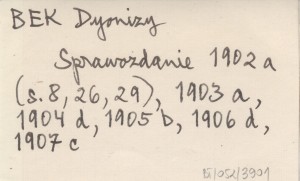 BEK Dyonizy
Sprawozdanie 1902 a
(s. 8, 26, 29), 1903 a,
1904 d, 1905 b, 1906 d,
1907 c
IS/052/3901